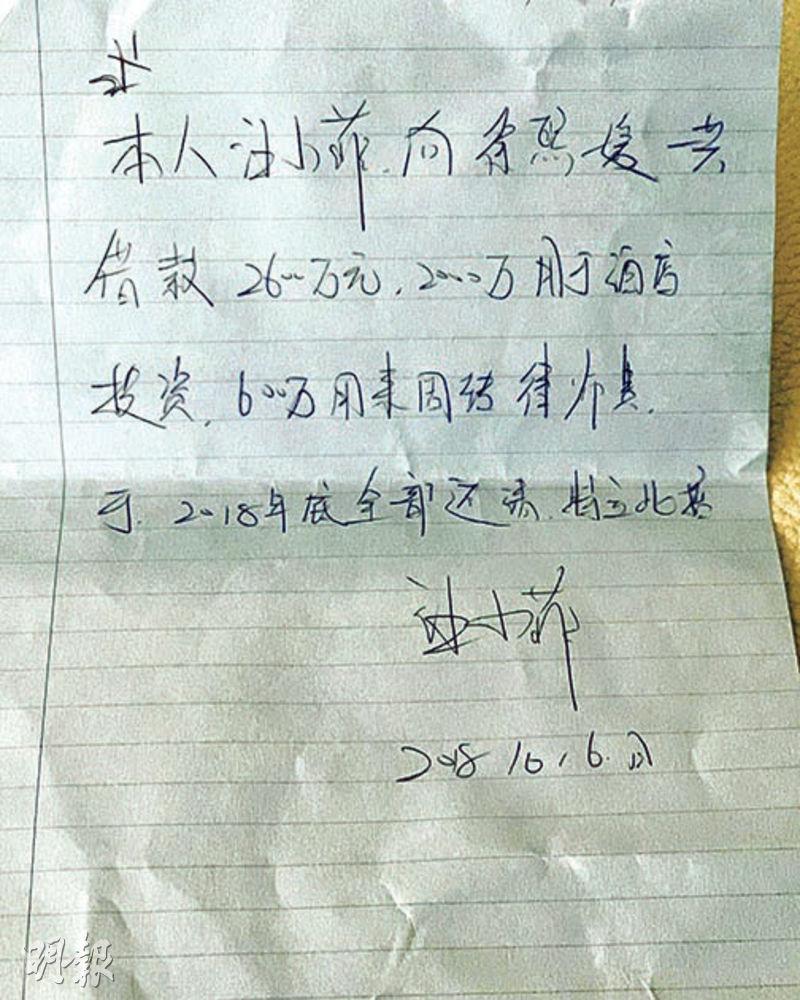 本人汪小菲.向徐熙媛共
借款2600万元,2000万用于酒店
投资,600万用来周转律师费.
于.2018年底全部还清.特立此据
汪小菲
2018.10.6.日
明報